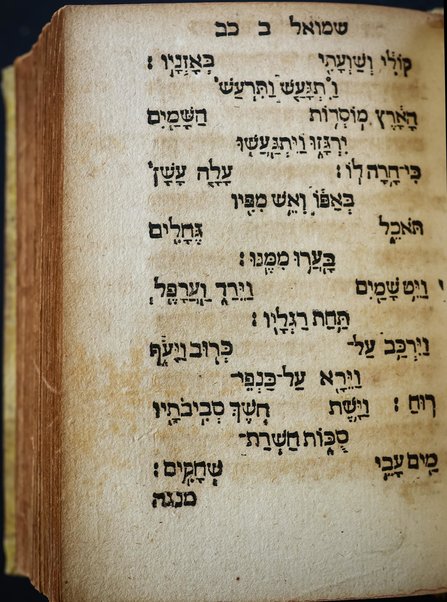 שמואל ב כב
קוֹלִ֔י וְשַׁוְעָתִ֖י בְּאָזְנָֽיו׃
וַ֯יִּתְגָּעַ֤שׁ וַתִּרְעַשׁ֙
הָאָ֔רֶץ מֽוֹסְד֥וֹת הַשָּׁמַ֖יִם
יִרְגָּ֑זוּ וַיִּֽתְגָּעֲשׁ֖וּ
כִּי־חָ֥רָה לֽוֹ׃ עָלָ֤ה עָשָׁן֙
בְּאַפּ֔וֹ וְאֵ֥שׁ מִפִּ֖יו
תֹּאכֵ֑ל גֶּחָלִ֖ים
בָּעֲר֥וּ מִמֶּֽנּוּ׃
י וַיֵּ֥ט שָׁמַ֖יִם וַיֵּרַ֑ד וַעֲרָפֶ֖ל
תַּ֥חַת רַגְלָֽיו׃
וַיִּרְכַּ֥ב עַל־ כְּר֖וּב וַיָּעֹ֑ף
וַיֵּרָ֖א עַל־כַּנְפֵי־
רֽוּחַ׃ וַיָּ֥שֶׁת חֹ֛שֶׁךְ סְבִיבֹתָ֖יו
סֻכּ֑וֹת חַֽשְׁרַת־
מַ֖יִם עָבֵ֥י שְׁחָקִֽים׃
מנגה